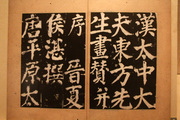 漢太中大
夫東方先
生畫賛并
序
晉夏
侯湛撰
唐平原太